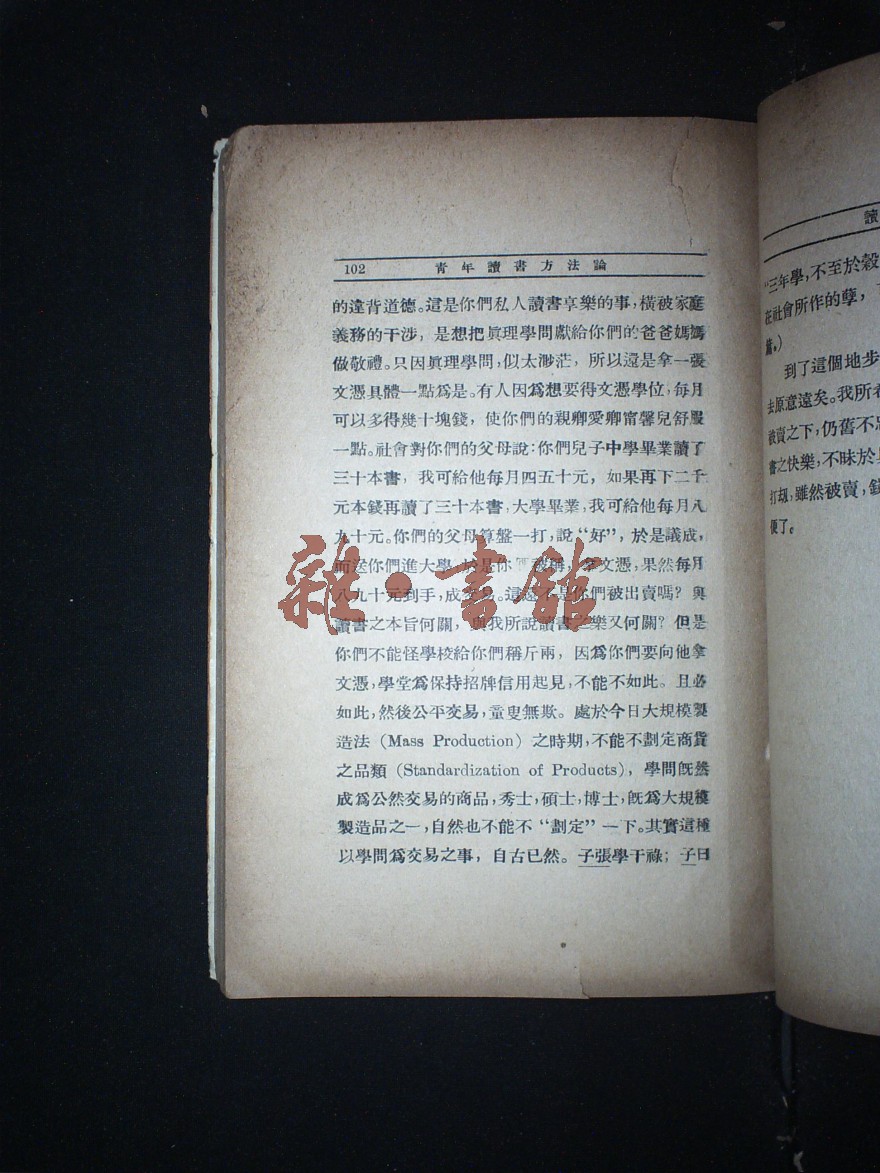 102 青年讀書方法論
的違背道德。這是你們私人讀書享樂的事，橫被家庭
義務的干涉，是想把眞理學問獻給你們的爸爸媽媽
做敬禮。只因眞理學問，似太渺茫，所以還是拿一張
文憑具體一點爲是。有人因爲想要得文憑學位，每月
可以多得幾十塊錢，使你們的親卿愛卿甯馨兒舒服
一點。社會對你們的父母說：你們兒子中學畢業讀了
三十本書，我可給他每月四五十元，如果再下二千
元本錢再讀了三十本書，大學畢業，我可給他每月八
九十元。你們的父母算盤一打，說“好”，於是議成，
而送你們進大學，於是你 被稱，拿文憑，果然每月
八九十元到手，成交易。這還不是你們被出賣嗎？與
讀書之本旨何關，與我所說讀書之樂又何關？但是
你們不能怪學校給你們稱斤兩，因爲你們要向他拿
文憑，學堂爲保持招牌信用起見，不能不如此。且必
如此，然後公平交易，童叟無欺。處於今日大規模製
造法（Mass Production）之時期，不能不劃定商貨
之品類（Standardization of Products），學問旣然
成爲公然交易的商品，秀士，碩士，博士，旣爲大規模
製造品之一，自然也不能不“劃定”一下。其實這種
以學問爲交易之事，自古已然。子張學干祿；子曰
雜·書館
讀
“三年學，不至於穀
在社會所作的孽，
篇。）
到了這個地步
去原意遠矣。我所希
被賣之下，仍舊不忘
書之快樂，不昧於
打刼，雖然被賣，錢
便了。